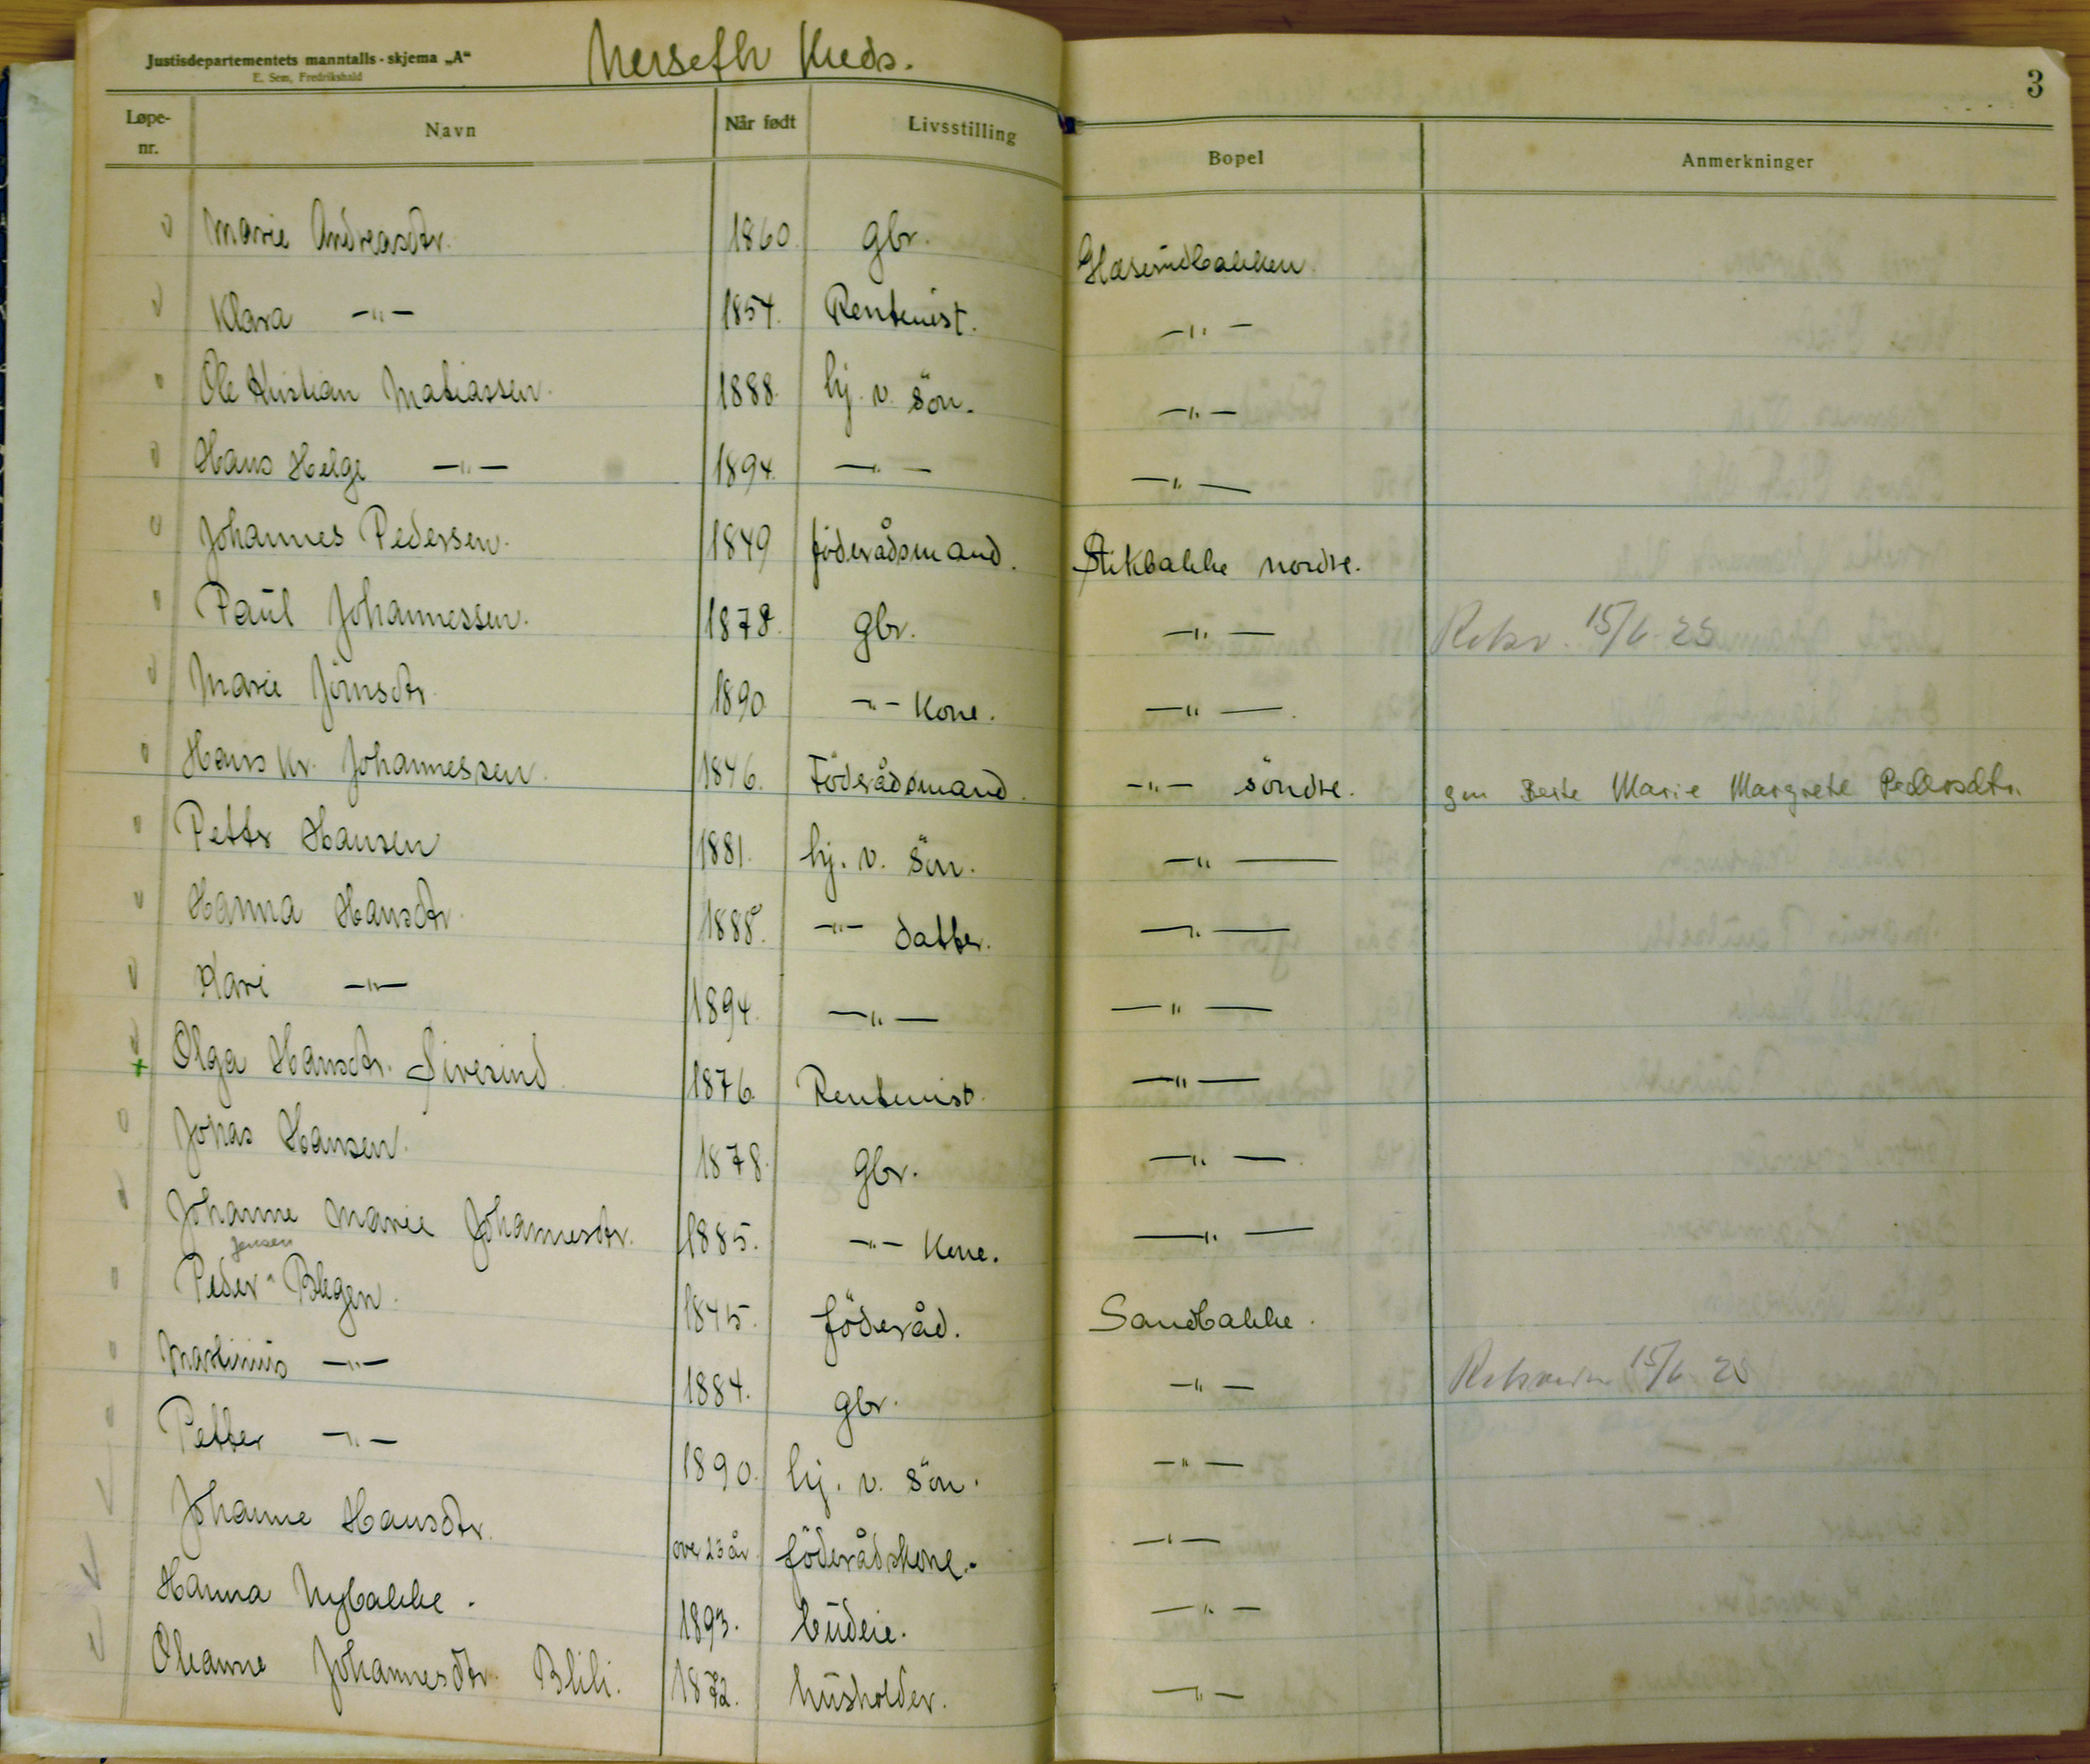 Justisdepartementets manntalls-skjema „A“
E. Sem, Fredrikshald
Nerseth Kreds.
3
Løpe-nr. Navn Når født Livsstilling Bopel Anmerkninger
Marie Andreasdtr. 1860. gbr. Glæserudbakken
Klara —"— 1854. Rentenist. —"—
Ole Kristian Matiassen. 1888. hj. v. sön. —"—
Hans Helge —"— 1894. —"— —"—
Johannes Pedersen. 1849 föderådsmand. Stikbakke nordre.
Paul Johannessen. 1878. gbr. —"— 15/6-25
Marie Jörnsdtr. 1890 —"— Kone. —"—
Hans Kr. Johannessen. 1846. Föderådsmand. —"— söndre. gm Berte Marie Margrete Pedersdtr.
Petter Hansen 1881. hj. v. sön. —"—
Hanna Hansdtr. 1888. —"— datter. —"—
Kari —"— 1894. —"— —"—
Olga Hansdtr. Sivesind 1876. Rentenist. —"—
Johas Hansen. 1878. gbr. —"—
Johanne Marie Johannesdtr. 1885. —"— Kone. —"—
Peder Jensen Blegen. 1845. föderåd. Sandbakke.
Martinius —"— 1884. gbr. —"— 15/6 25
Petter —"— 1890. hj. v. sön. —"—
Johanne Hansdtr. over 23 år. föderådskone. —"—
Hanna Nybakke. 1893. budeie. —"—
Oleanne Johannesdtr. Blili. 1872. husholder. —"—